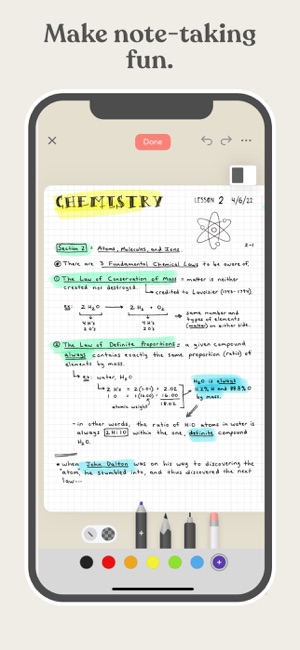 Make note-taking
fun.
Done
CHEMISTRY
LESSON 2 4/6/22
Section 2 = Atoms, Molecules, and Ions
2-1
There are 3 Fundamental Chemical Laws to be aware of.
① The Law of Conservation of Mass = matter is neither
created nor destroyed.
credited to Lavoisier
ex: 2 H₂O → 2 H₂ + O₂
4 H's
2 O's
4 H's
2 O's
same number and
types of elements
(matter) on either side.
② The Law of Definite Proportions = a given compound
always contains exactly the same proportion (ratio) of
elements by mass.
ex: water, H₂O
2 H's = 2(1.01) = 2.02
1 O = 1(16.00) = 16.00
18.02
atomic weight
H₂O is always
by mass.
- in other words, the ratio of H:O atoms in water is
always 2H:1O within the one, definite compound
H₂O.
when John Dalton was on his way to discovering the
atom, he stumbled into, and thus discovered the next
law...